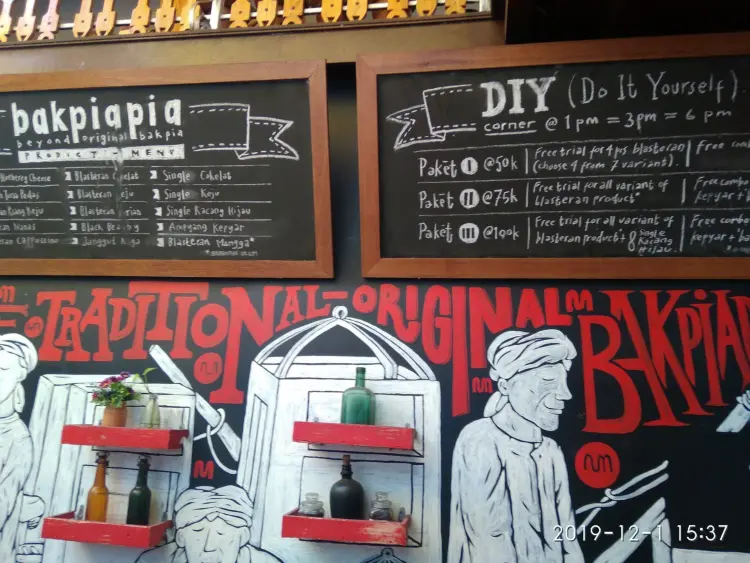 bakpiapia
beyond original bakpia
PRODUCT MENU
Blueberry Cheese
Blasteran Cokelat
Single Cokelat
Tuna Pedas
Blasteran Keju
Single Keju
Pisang Keju
Blasteran Durian
Single Kacang Hijau
Nanas
Ampyang Kepyar
Cappuccino
Blasteran Mangga*
DIY (Do It Yourself)
corner @ 1 pm = 3 pm = 6 pm
Paket I @50k
Free trial for 4 pcs blasteran
(choose 4 from 7 variant).
Free comb
Paket II @75k
Free trial for all variant of
blasteran product*
Free combo
kepyar + 
Paket III @100k
Free trial for all variant of
blasteran product* + 8 Single Kacang Hijau
Free combo
kepyar + 
TRADITIONAL - ORIGINAL BAKPIA
2019-12-1 15:37